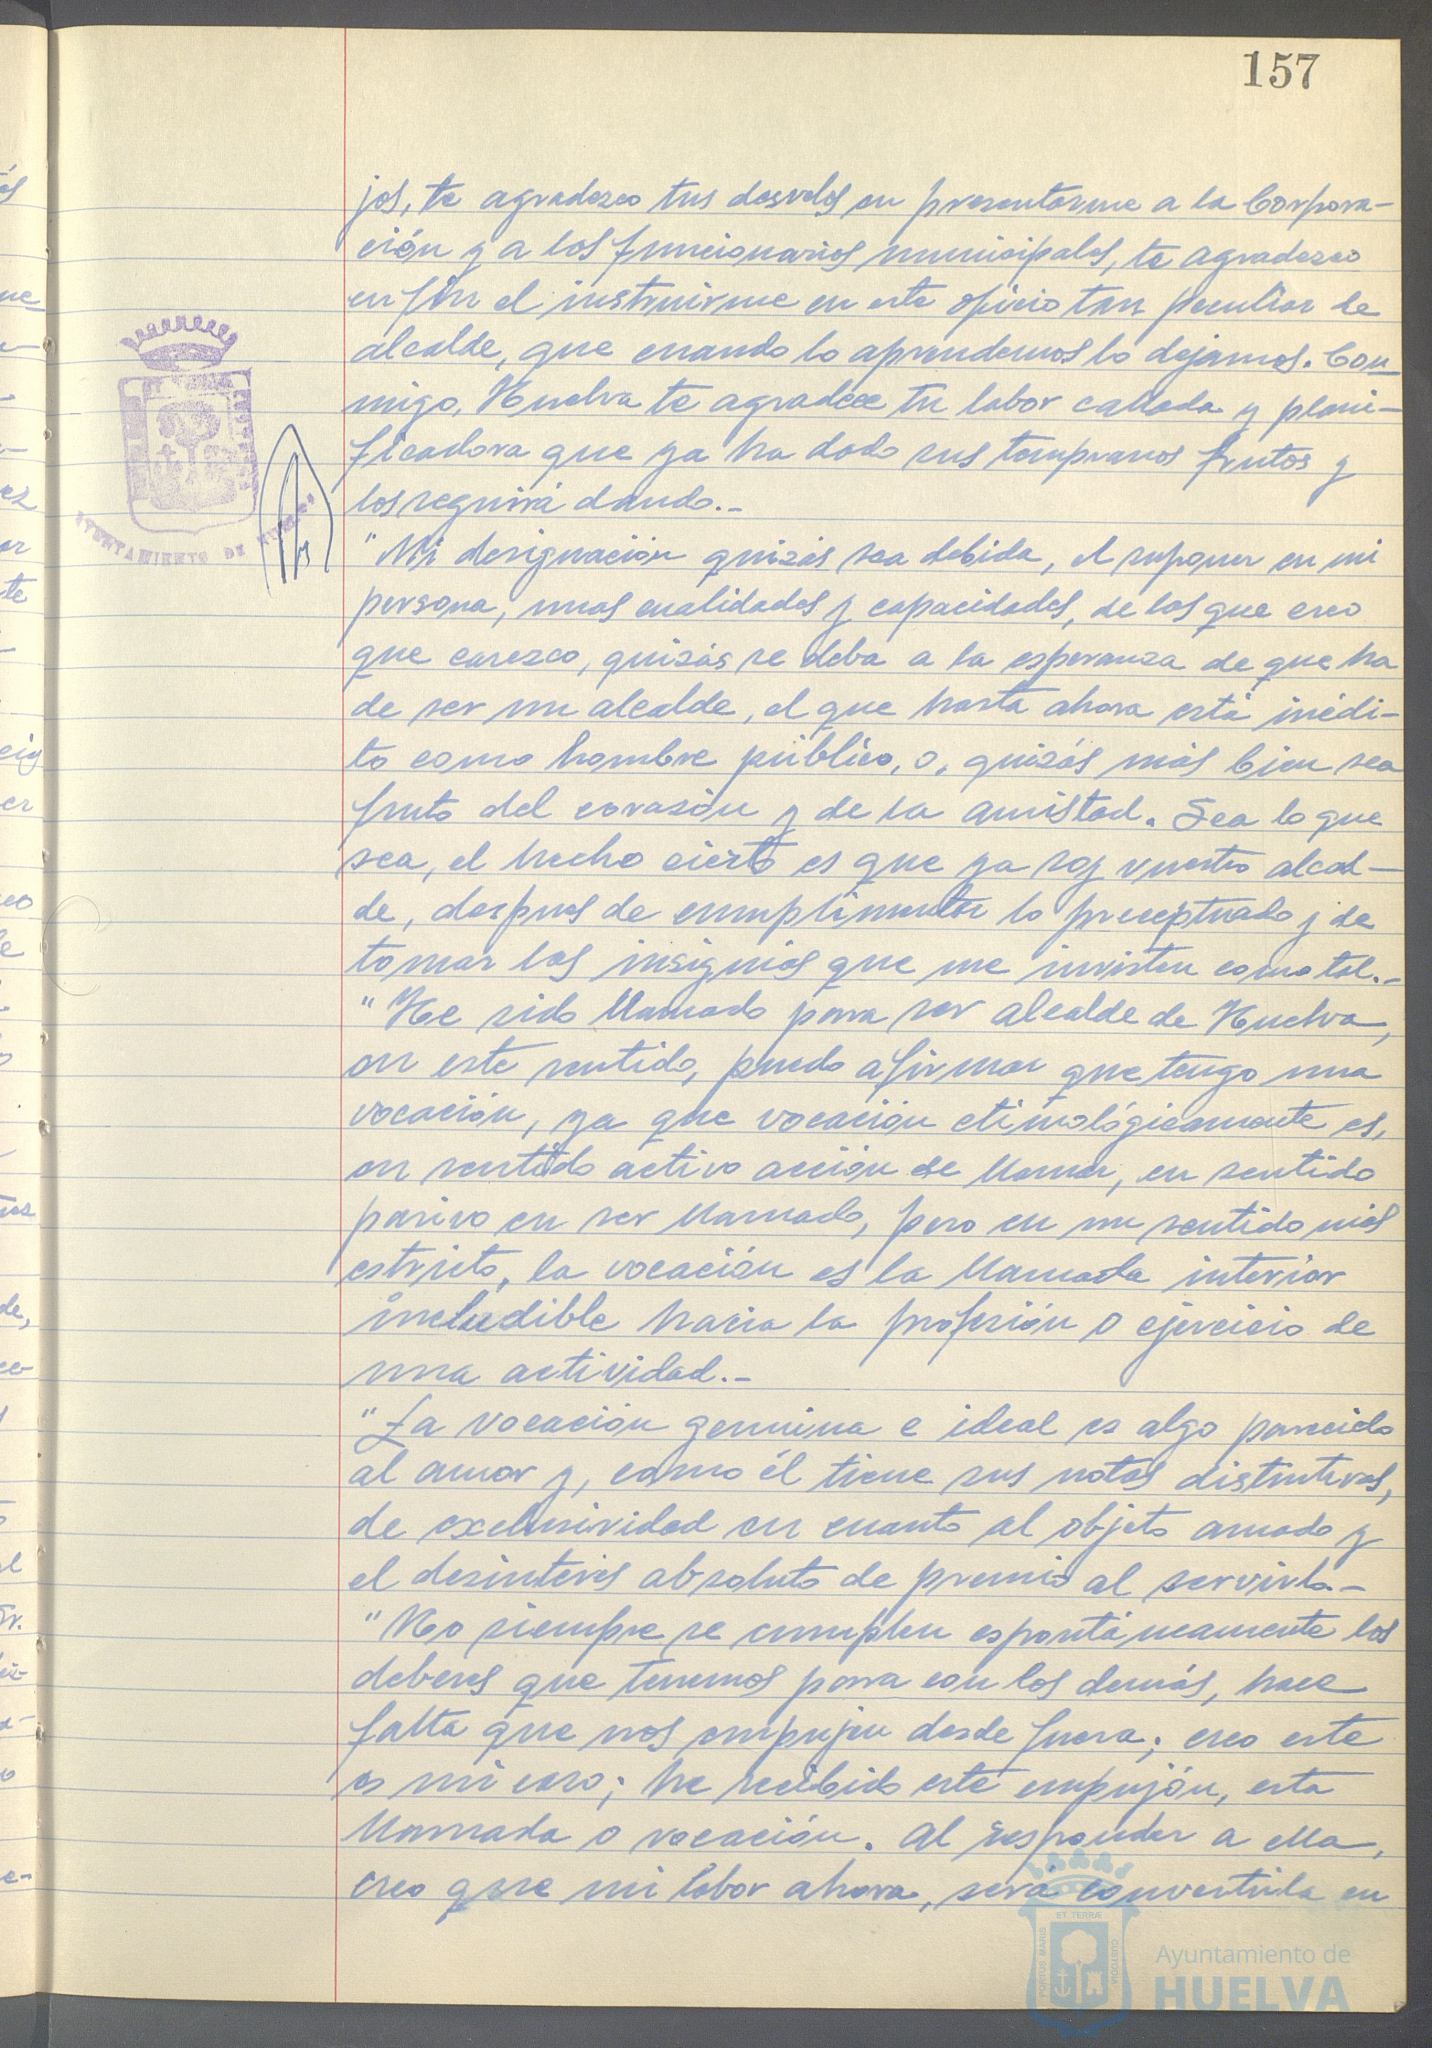 157
jos, te agradezco tus desvelos en presentarme a la Corpora-
ción y a los funcionarios municipales, te agradezco
en fin el instruirme en este oficio tan peculiar de
alcalde, que cuando lo aprendemos lo dejamos. Con-
migo, Huelva te agradece tu labor callada y plani-
ficadora que ya ha dado sus tempranos frutos y
los seguirá dando.-
"Mi designación quizás sea debida, el suponer en mi
persona, unas cualidades y capacidades, de las que creo
que carezco, quizás se deba a la esperanza de que ha
de ser un alcalde, el que hasta ahora está inédi-
to como hombre público, o, quizás más bien sea
fruto del corazón y de la amistad. Sea lo que
sea, el hecho cierto es que ya soy vuestro alcal-
de, despues de cumplimentar lo preceptuado y de
tomar las insignias que me invisten como tal.-
"He sido llamado para ser alcalde de Huelva,
en este sentido, puedo afirmar que tengo una
vocación, ya que vocación etimológicamente es,
en sentido activo acción de llamar, en sentido
pasivo en ser llamado, pero en un sentido más
estricto, la vocación es la llamada interior
ineludible hacia la profesión o ejercicio de
una actividad.-
"La vocación genuina e ideal es algo parecido
al amor y, como él tiene sus notas distintivas,
de exclusividad en cuanto al objeto amado y
el desinterés absoluto de premio al servirlo.-
"No siempre se cumplen espontáneamente los
deberes que tenemos para con los demás, hace
falta que nos empujen desde fuera; creo este
es mi caso; he recibido este empujón, esta
llamada o vocación. Al responder a ella,
creo que mi labor ahora, será convertirla en
AYUNTAMIENTO DE HUELVA
PORTUS MARIS ET TERRAE CUSTODIA
Ayuntamiento de
HUELVA